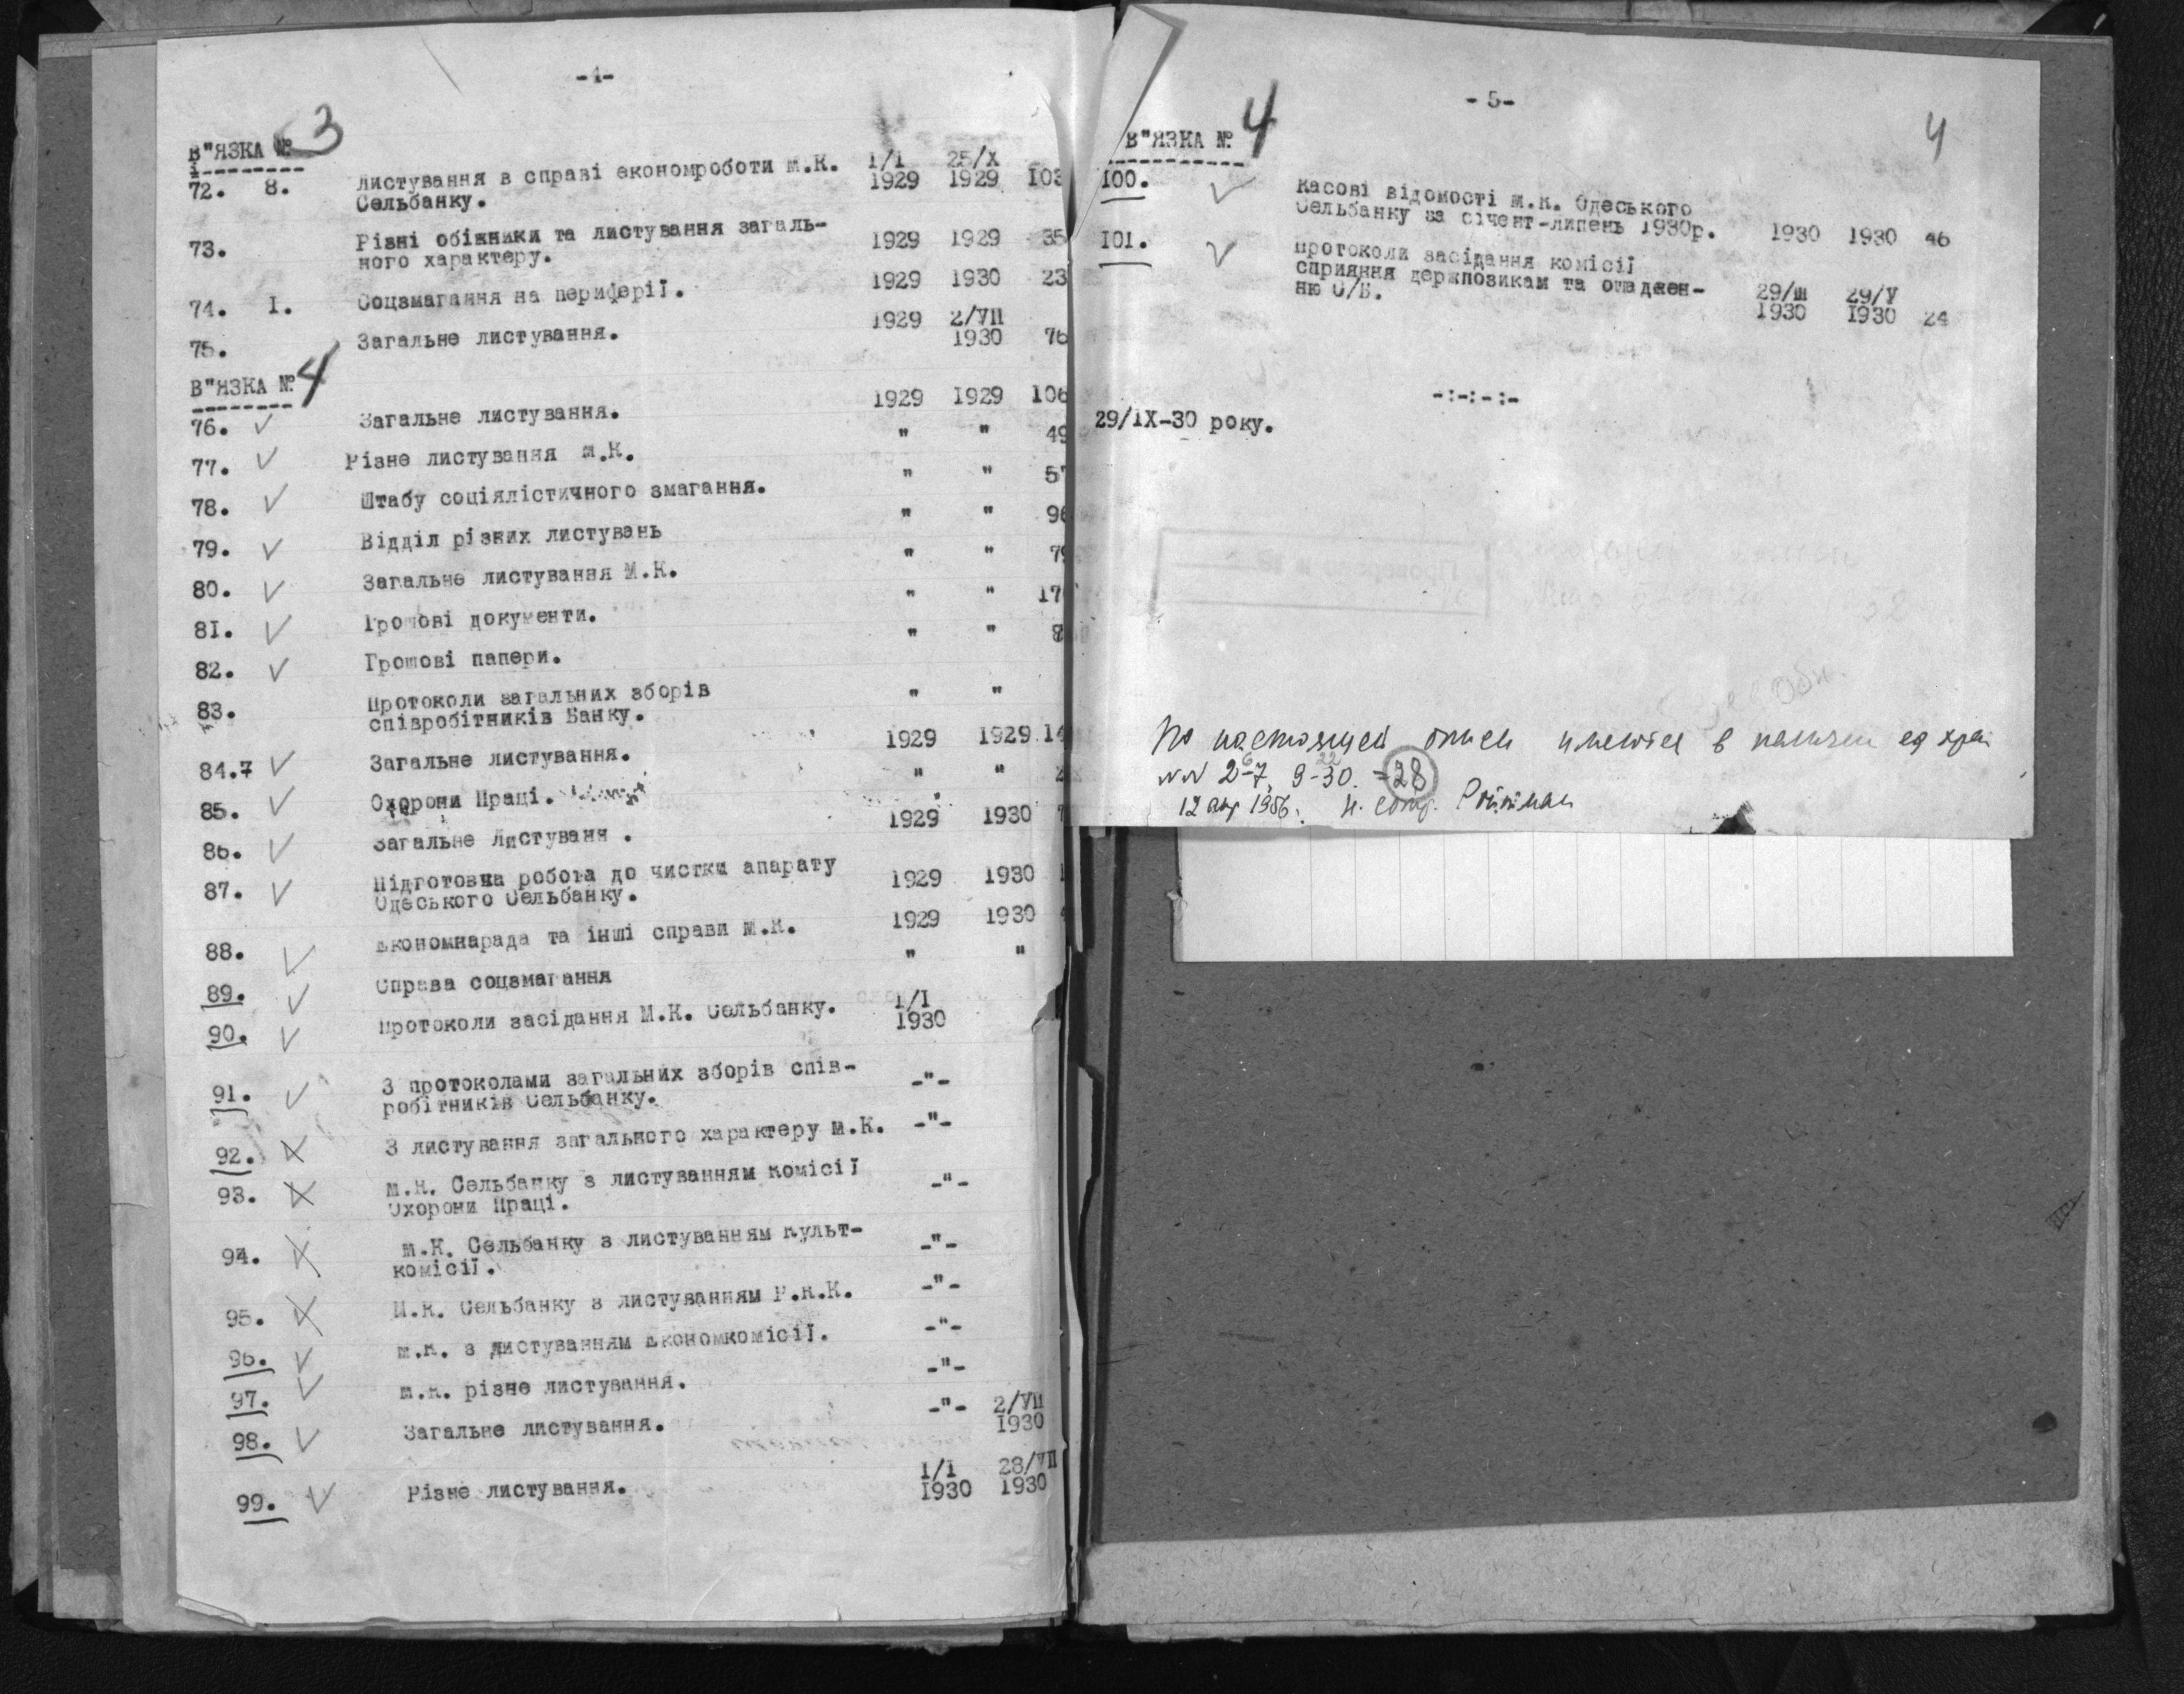 -4-
В"ЯЗКА № 3
72. 8. Листування в справі економроботи М.К. 1/I 25/X
Сельбанку. 1929 1929 103
73. Різні обіжники та листування загаль- 1929 1929 35
ного характеру.
74. I. Соцзмагання на периферії. 1929 1930 23
75. Загальне листування. 1929 2/VII
1930 76
В"ЯЗКА № 4
76. Загальне листування. 1929 1929 106
77. Різне листування М.К. " " 49
78. Штабу соціялістичного змагання. " " 57
79. Відділ різних листувань " " 96
80. Загальне листування М.К. " " 79
81. Грошові документи. " " 17
82. Грошові папери. " " 8
83. Протоколи загальних зборів
співробітників Банку. " "
84.7 Загальне листування. 1929 1929 14
85. Охорони Праці. " "
86. Загальне листуваня . 1929 1930 7
87. Підготовна робота до чистки апарату
Одеського Сельбанку. 1929 1930
88. Економнарада та інші справи М.К. 1929 1930
89. Справа соцзмагання " "
90. Протоколи засідання М.К. Сельбанку. 1/I
1930
91. З протоколами загальних зборів спів-
робітників Сельбанку. -"-
92. З листування загального характеру М.К. -"-
93. М.К. Сельбанку з листуванням Комісії
Охорони Праці. -"-
94. М.К. Сельбанку з листуванням Культ-
комісії. -"-
95. М.К. Сельбанку з листуванням Р.К.К. -"-
96. М.К. з листуванням Економкомісії. -"-
97. М.К. різне листування. -"-
98. Загальне листування. -"- 2/VII
1930
99. Різне листування. 1/I 28/VII
1930 1930
- 5-
4
В"ЯЗКА № 4
100. Касові відомості М.К. Одеського
Сельбанку за січент-липень 1930р. 1930 1930 46
101. Протоколи засідання комісії
сприяння держпозикам та ощаджен-
ню С/Б. 29/Ш 29/V
1930 1930 24
-:-:-:-
29/IX-30 року.
По настоящей описи имеются в наличии ед хран
NN 2-7, 9-30. = 28
6 22
12 апр 1956г. Н. сотр. Ройтман